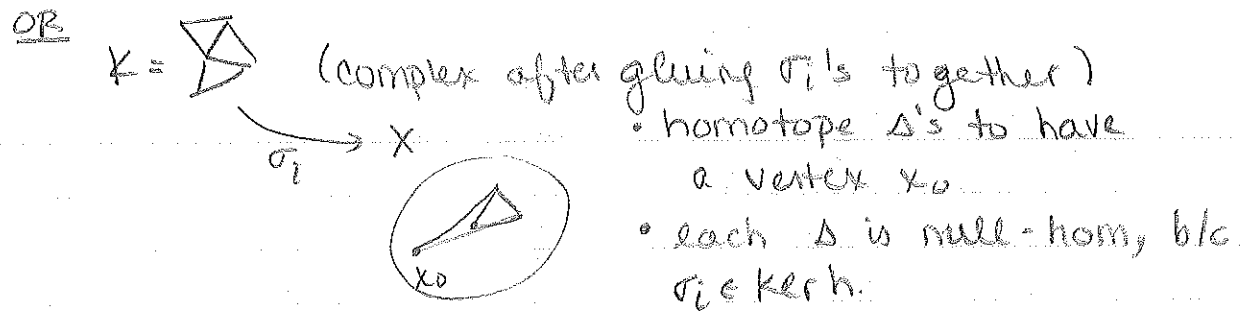 OR
K = (complex after gluing σᵢ's together)
σᵢ → X
• homotope Δ's to have
a vertex x₀
x₀
• each Δ is null-hom, b/c
σᵢ ∈ ker h.